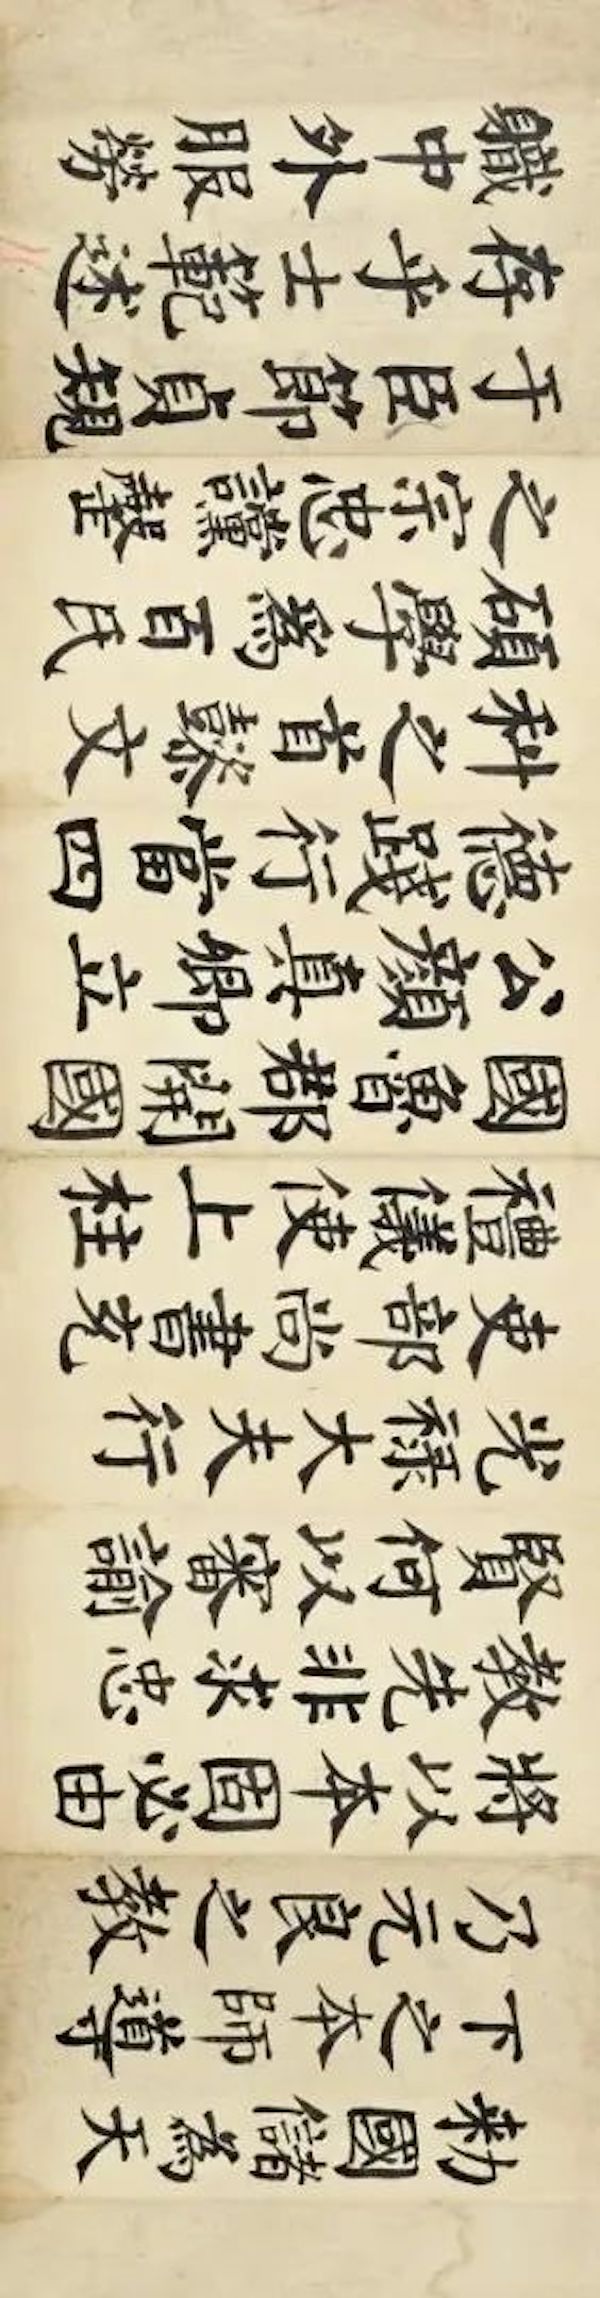 勑國儲為天
下之本師導
乃元良之教
將以本固必由
教先非求忠
賢何以審諭
光祿大夫行
吏部尚書充
禮儀使上柱
國魯郡開國
公顏真卿立
德踐行當四
科之首懿文
碩學為百氏
之宗忠讜罄
于臣節貞規
存乎士範述
軄中外服勞